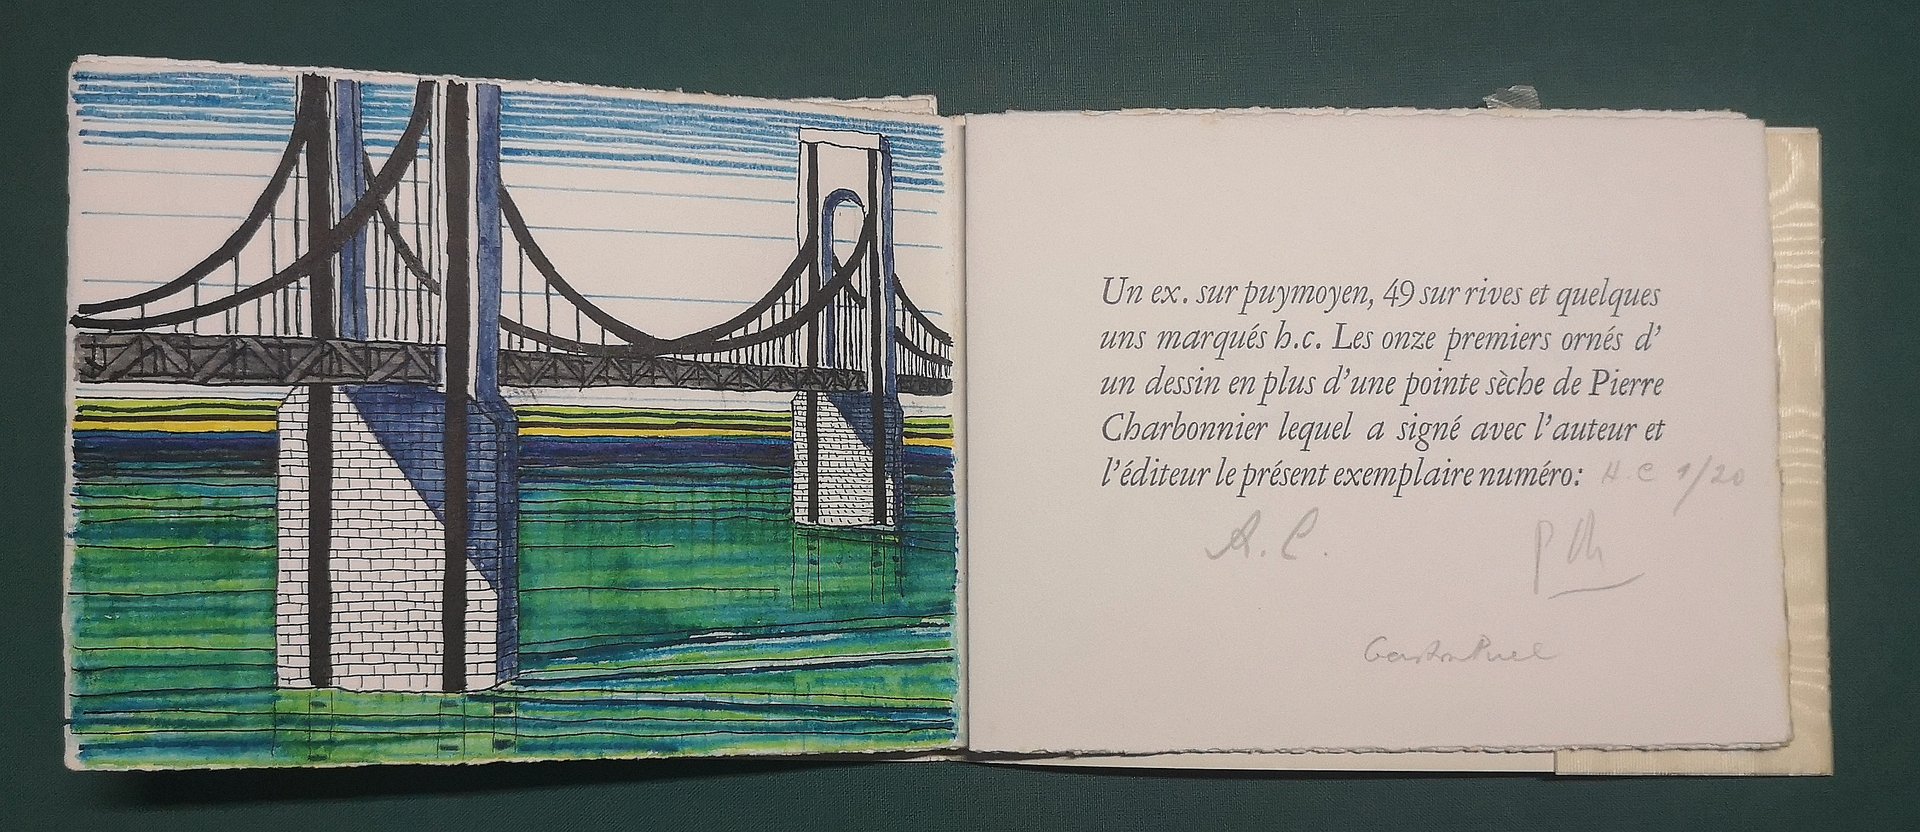 Un ex. sur puymoyen, 49 sur rives et quelques
uns marqués h.c. Les onze premiers ornés d'
un dessin en plus d'une pointe sèche de Pierre
Charbonnier lequel a signé avec l'auteur et
l'éditeur le présent exemplaire numéro: H.C 1/20
A. C.
P Ch
Gaston Puel